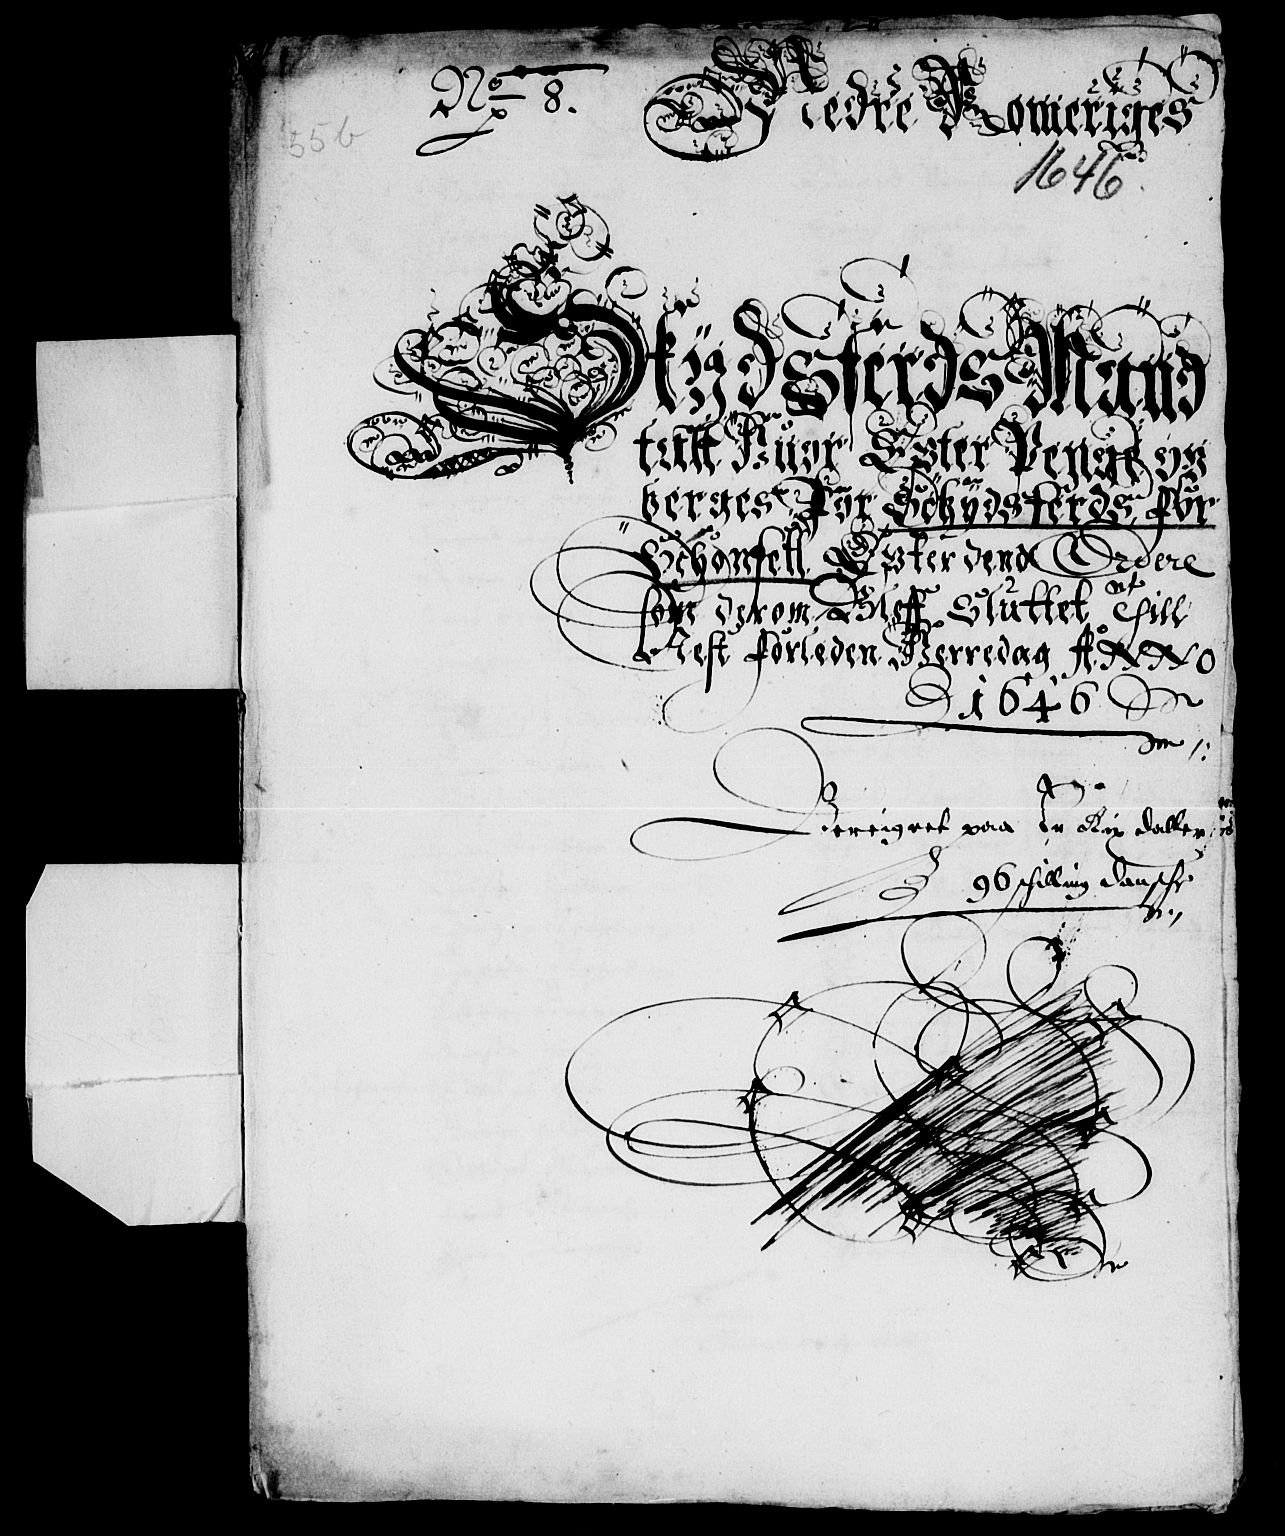 No 8.
Nedre Romeriges
556
1646
Skydsferds Mand
tall Huor Efter Penge op
berges For Schydsferds för
Schonsell Efter dend Ordere
som derom Bleff Sluttet till
Nest forleden Herredag A. NNO
1646
Bereignet paa In Rix daller
96 schilling danscke